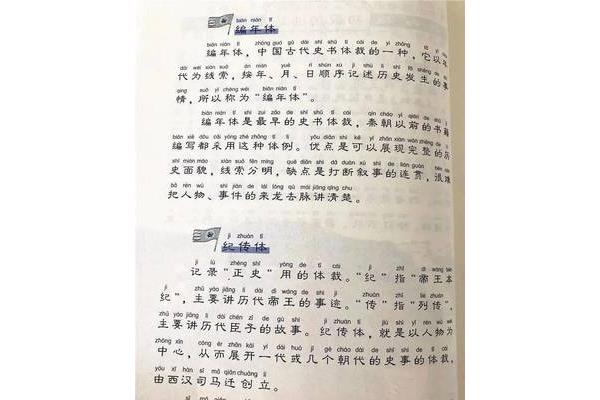 biān nián tǐ
编年体
biān nián tǐ zhōng guó gǔ dài shǐ shū tǐ cái de yì zhǒng tā yǐ nián
编年体，中国古代史书体裁的一种，它以年
dài wéi xiàn suǒ àn nián yuè rì shùn xù jì shù lì shǐ fā shēng de shì
代为线索，按年、月、日顺序记述历史发生的事
qing suǒ yǐ chēng wéi biān nián tǐ
情，所以称为“编年体”。
biān nián tǐ shì zuì zǎo de shǐ shū tǐ cái qín cháo yǐ qián de shū jí
编年体是最早的史书体裁，秦朝以前的书籍
biān xiě dōu cǎi yòng zhè zhǒng tǐ lì yōu diǎn shì kě yǐ zhǎn xiàn wán zhěng de lì
编写都采用这种体例。优点是可以展现完整的历
shǐ miàn mào xiàn suǒ fēn míng quē diǎn shì dǎ duàn xù shì de lián guàn hěn nán
史面貌，线索分明，缺点是打断叙事的连贯，很难
bǎ rén wù shì jiàn de lái lóng qù mài jiǎng qīng chu
把人物、事件的来龙去脉讲清楚。
jì zhuàn tǐ
纪传体
jì lù zhèng shǐ yòng de tǐ cái jì zhǐ dì wáng běn
记录“正史”用的体裁。“纪”指“帝王本
jì zhǔ yào jiǎng lì dài dì wáng de shì jì zhuàn zhǐ liè zhuàn
纪”，主要讲历代帝王的事迹。“传”指“列传”，
zhǔ yào jiǎng lì dài chén zǐ de gù shi jì zhuàn tǐ jiù shì yǐ rén wù wéi
主要讲历代臣子的故事。纪传体，就是以人物为
zhōng xīn cóng ér zhǎn kāi yí dài huò jǐ gè cháo dài de shǐ shì de tǐ cái
中心，从而展开一代或几个朝代的史事的体裁，
yóu xī hàn sī mǎ qiān chuàng lì
由西汉司马迁创立。